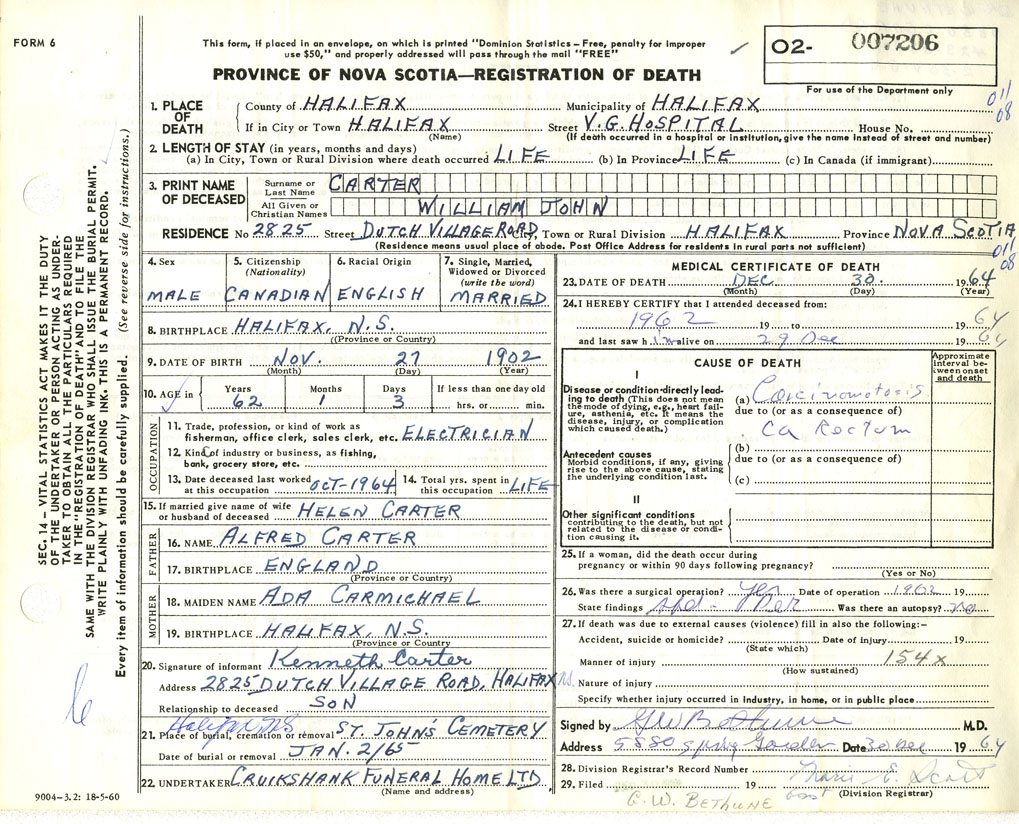 FORM 6
This form, if placed in an envelope, on which is printed "Dominion Statistics – Free, penalty for improper
use $50," and properly addressed will pass through the mail "FREE"
O2- 007206
For use of the Department only
PROVINCE OF NOVA SCOTIA—REGISTRATION OF DEATH
011
08
SEC. 14 – VITAL STATISTICS ACT MAKES IT THE DUTY
OF THE UNDERTAKER OR PERSON ACTING AS UNDER-
TAKER TO OBTAIN ALL THE PARTICULARS REQUIRED
IN THE "REGISTRATION OF DEATH" AND TO FILE THE
SAME WITH THE DIVISION REGISTRAR WHO SHALL ISSUE THE BURIAL PERMIT.
WRITE PLAINLY WITH UNFADING INK. THIS IS A PERMANENT RECORD.
Every item of information should be carefully supplied. (See reverse side for instructions.)
1. PLACE OF DEATH
County of HALIFAX Municipality of HALIFAX
If in City or Town HALIFAX Street V.G. HOSPITAL House No.
(Name) (If death occurred in a hospital or institution, give the name instead of street and number)
2. LENGTH OF STAY (in years, months and days)
(a) In City, Town or Rural Division where death occurred LIFE (b) In Province LIFE (c) In Canada (if immigrant)
3. PRINT NAME OF DECEASED
Surname or Last Name CARTER
All Given or Christian Names WILLIAM JOHN
RESIDENCE No 2825 Street DUTCH VILLAGE ROAD City, Town or Rural Division HALIFAX Province NOVA SCOTIA
(Residence means usual place of abode. Post Office Address for residents in rural parts not sufficient)
011
08
4. Sex
MALE
5. Citizenship
(Nationality)
CANADIAN
6. Racial Origin
ENGLISH
7. Single, Married,
Widowed or Divorced
(write the word)
MARRIED
8. BIRTHPLACE HALIFAX, N.S.
(Province or Country)
9. DATE OF BIRTH NOV. 27 1902
(Month) (Day) (Year)
10. AGE in Years 62 Months 1 Days 3 If less than one day old
hrs. or min.
OCCUPATION
11. Trade, profession, or kind of work as
fisherman, office clerk, sales clerk, etc. ELECTRICIAN
12. Kind of industry or business, as fishing,
bank, grocery store, etc.
13. Date deceased last worked
at this occupation OCT-1964
14. Total yrs. spent in
this occupation LIFE
15. If married give name of wife
or husband of deceased HELEN CARTER
FATHER
16. NAME ALFRED CARTER
17. BIRTHPLACE ENGLAND
(Province or Country)
MOTHER
18. MAIDEN NAME ADA CARMICHAEL
19. BIRTHPLACE HALIFAX, N.S.
(Province or Country)
20. Signature of informant Kenneth Carter
Address 2825 DUTCH VILLAGE ROAD, HALIFAX N.S.
Relationship to deceased SON
Halifax NS
21. Place of burial, cremation or removal ST. JOHN'S CEMETERY
Date of burial or removal JAN. 2/65
22. UNDERTAKER CRUIKSHANK FUNERAL HOME LTD
(Name and address)
9004-3.2: 18-5-60
MEDICAL CERTIFICATE OF DEATH
23. DATE OF DEATH DEC 30. 1964
(Month) (Day) (Year)
24. I HEREBY CERTIFY that I attended deceased from:
1962 19 to 19 64
and last saw him alive on 29 Dec 19 64
CAUSE OF DEATH
Approximate interval between onset and death
I
Disease or condition directly lead-
ing to death (This does not mean
the mode of dying, e.g., heart fail-
ure, asthenia, etc. It means the
disease, injury, or complication
which caused death.)
(a) Carcinomatosis
due to (or as a consequence of)
CA Rectum
Antecedent causes
Morbid conditions, if any, giving
rise to the above cause, stating
the underlying condition last.
(b)
due to (or as a consequence of)
(c)
II
Other significant conditions
contributing to the death, but not
related to the disease or condi-
tion causing it.
25. If a woman, did the death occur during
pregnancy or within 90 days following pregnancy?
(Yes or No)
26. Was there a surgical operation? Yes Date of operation 1962 19
State findings Was there an autopsy? no
27. If death was due to external causes (violence) fill in also the following:–
Accident, suicide or homicide? Date of injury 19
(State which)
Manner of injury 154X
(How sustained)
Nature of injury
Specify whether injury occurred in industry, in home, or in public place
Signed by GW Bethune M.D.
Address 5880 Spring Garden Date 30 Dec 1964
28. Division Registrar's Record Number
29. Filed 19 Marie E. Scott
(Division Registrar)
G.W. BETHUNE